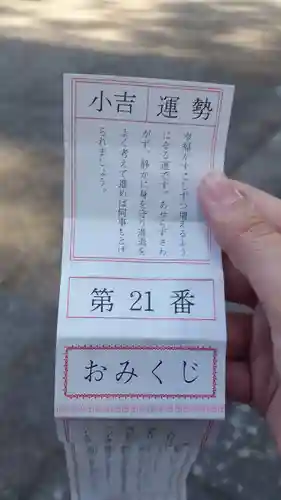 小吉 運勢
幸福がすこしずつ増えるよう
になる運です。あせらずさわ
がず。静かに身を守り進退を
よく考えて進めば何事もとげ
られましょう。
第21番
おみくじ